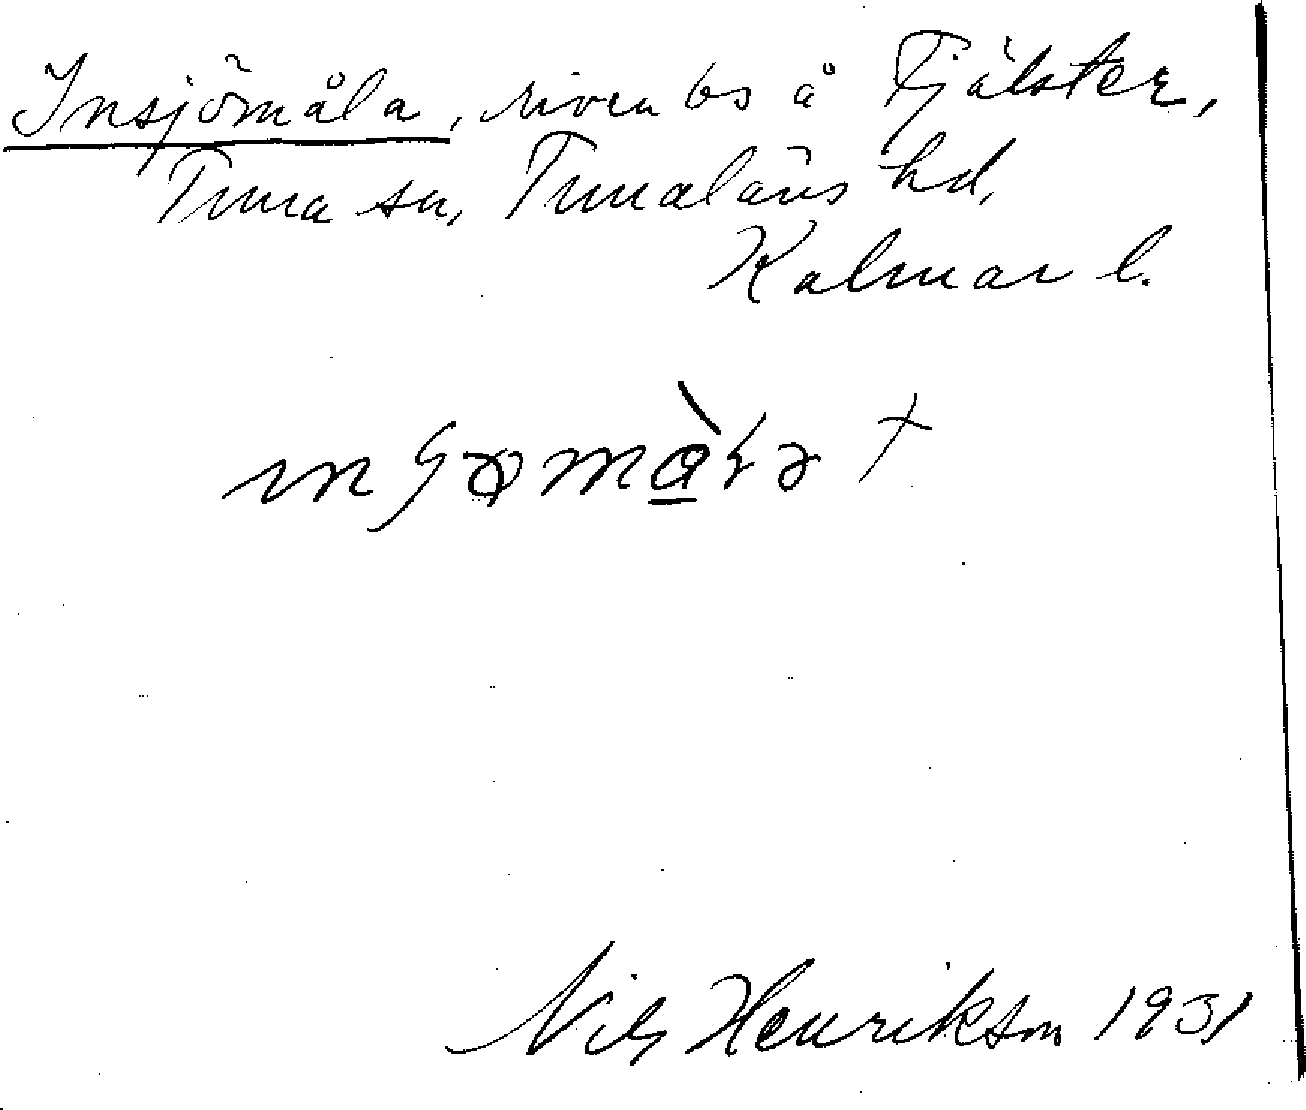 Insjömåla, riven bs å Fjälster,
Tuna sn, Tunaläns hd,
Kalmar l.
Nils Henrikson 1931